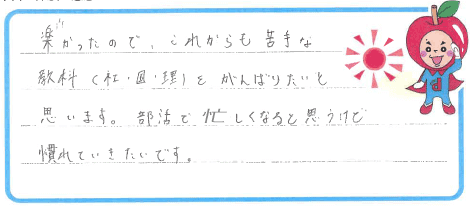 楽かったので、これからも苦手な
教科(社・国・理)をがんばりたいと
思います。部活で忙しくなると思うけど
慣れていきたいです。
d